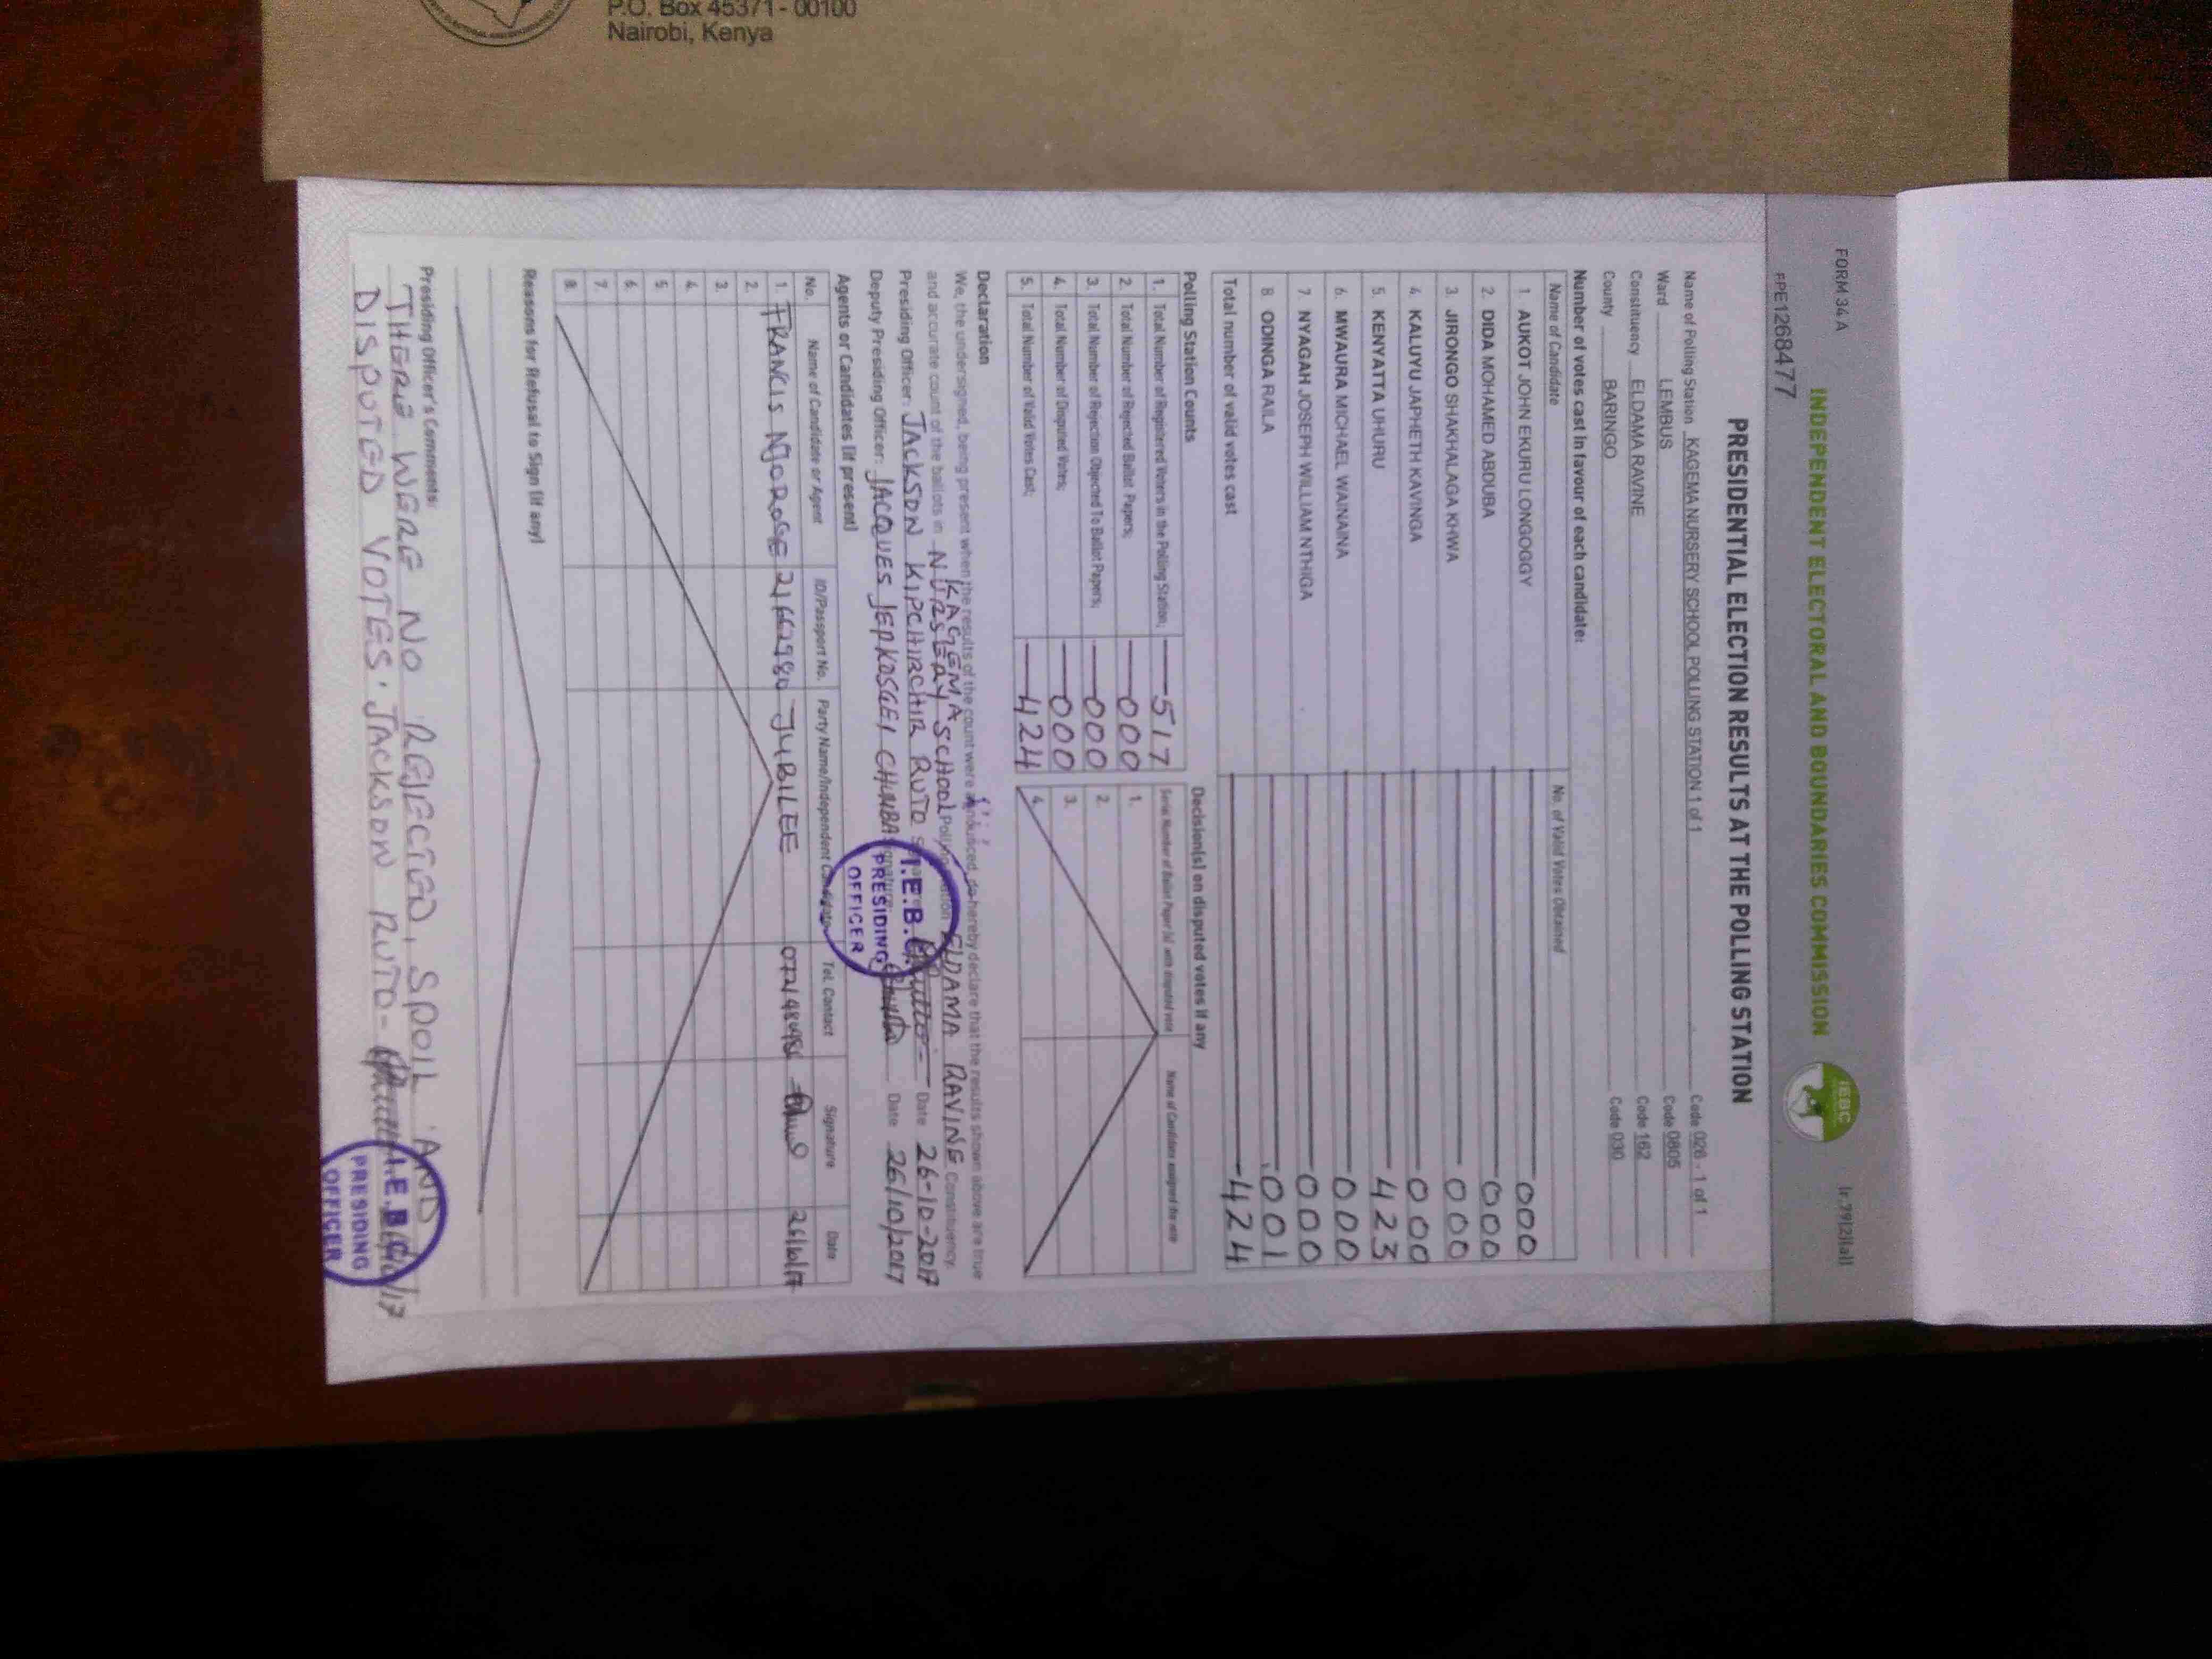 P.O. Box 45371 - 00100
Nairobi, Kenya
FORM 34A
INDEPENDENT ELECTORAL AND BOUNDARIES COMMISSION
IEBC
PPE1268477
PRESIDENTIAL ELECTION RESULTS AT THE POLLING STATION
Name of Polling Station KAGEMA NURSERY SCHOOL POLLING STATION 1 of 1 Code 026 - 1 of 1
Ward LEMBUS Code 0805
Constituency ELDAMA RAVINE Code 162
County BARINGO Code 030
Number of votes cast in favour of each candidate:
Name of Candidate No. of Valid Votes Obtained
1. AUKOT JOHN EKURU LONGOGGY 000
2. DIDA MOHAMED ABDUBA 000
3. JIRONGO SHAKHALAGA KHWA 000
4. KALUYU JAPHETH KAVINGA 000
5. KENYATTA UHURU 423
6. MWAURA MICHAEL WAINAINA 000
7. NYAGAH JOSEPH WILLIAM NTHIGA 000
8. ODINGA RAILA 001
Total number of valid votes cast 424
Polling Station Counts
1. Total Number of Registered Voters in the Polling Station; 517
2. Total Number of Rejected Ballot Papers; 000
3. Total Number of Rejection Objected To Ballot Papers; 000
4. Total Number of Disputed Votes; 000
5. Total Number of Valid Votes Cast; 424
Decision(s) on disputed votes if any
Serial Number of Ballot Paper (s) with disputed vote Name of Candidate assigned the vote
1.
2.
3.
4.
Declaration
We, the undersigned, being present when the results of the count were announced, do hereby declare that the results shown above are true
and accurate count of the ballots in KAGEMA NURSERY SCHOOL Polling Station ELDAMA RAVINE Constituency.
Presiding Officer: JACKSON KIPCHIRCHIR RUTO Signature Date 26-10-2017
Deputy Presiding Officer: JACQUES JEPKOSGEI CHUMBA Signature Date 26/10/2017
I.E.B.C.
PRESIDING
OFFICER
Agents or Candidates (if present)
No. Name of Candidate or Agent ID/Passport No. Party Name/Independent Candidate Tel. Contact Signature Date
1. FRANCIS NJOROGE JUBILEE 26/10/17
2.
3.
4.
5.
6.
7.
8.
Reasons for Refusal to Sign (if any)
Presiding Officer's Comments:
THERE WERE NO REJECTED, SPOIL AND
DISPUTED VOTES. JACKSON RUTO-
I.E.B.C.
PRESIDING
OFFICER